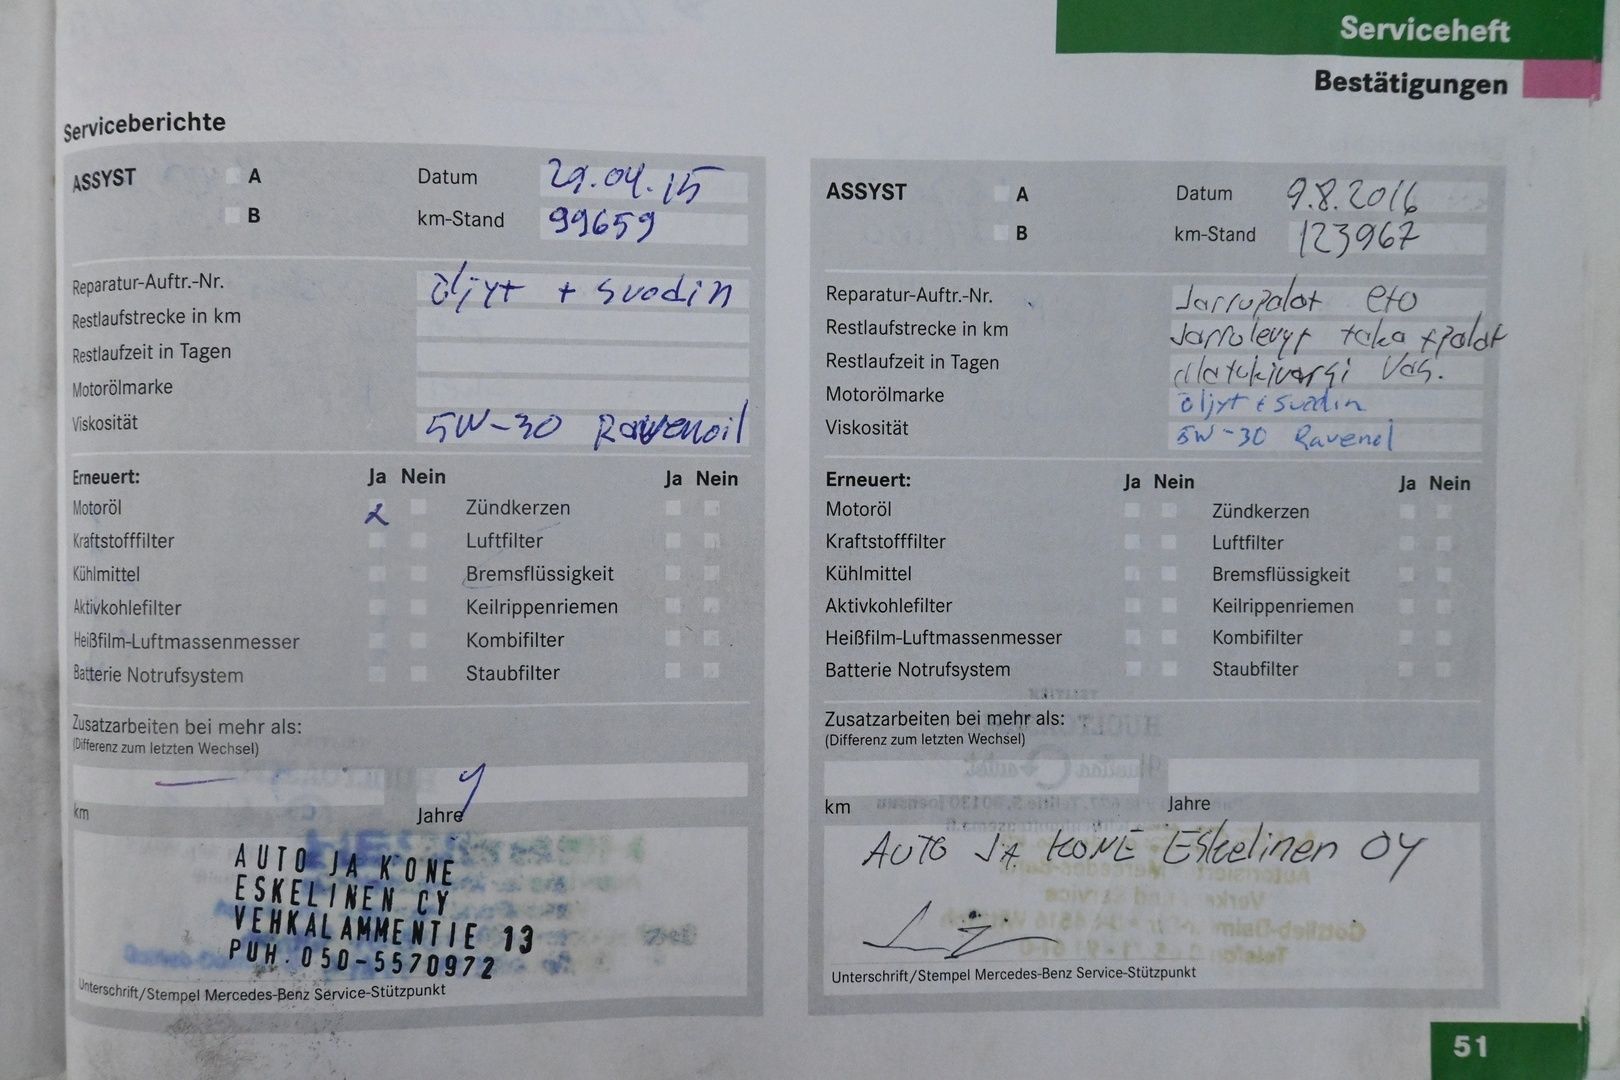 Serviceheft
Bestätigungen
Serviceberichte
ASSYST
A
B
Datum 29.04.15
km-Stand 99659
Reparatur-Auftr.-Nr. öljyt + suodin
Restlaufstrecke in km
Restlaufzeit in Tagen
Motorölmarke
Viskosität 5W-30 Ravenoil
Erneuert: Ja Nein Ja Nein
Motoröl x Zündkerzen
Kraftstofffilter Luftfilter
Kühlmittel Bremsflüssigkeit
Aktivkohlefilter Keilrippenriemen
Heißfilm-Luftmassenmesser Kombifilter
Batterie Notrufsystem Staubfilter
Zusatzarbeiten bei mehr als:
(Differenz zum letzten Wechsel)
km Jahre
AUTO JA KONE
ESKELINEN CY
VEHKALAMMENTIE 13
PUH.050-5570972
Unterschrift/Stempel Mercedes-Benz Service-Stützpunkt
ASSYST
A
B
Datum 9.8.2016
km-Stand 123967
Reparatur-Auftr.-Nr. Jarrupalat eto
Restlaufstrecke in km Jarrulevyt taka + palat
Restlaufzeit in Tagen alatukivarsi vas.
Motorölmarke öljyt + suodin
Viskosität 5W-30 Ravenol
Erneuert: Ja Nein Ja Nein
Motoröl Zündkerzen
Kraftstofffilter Luftfilter
Kühlmittel Bremsflüssigkeit
Aktivkohlefilter Keilrippenriemen
Heißfilm-Luftmassenmesser Kombifilter
Batterie Notrufsystem Staubfilter
Zusatzarbeiten bei mehr als:
(Differenz zum letzten Wechsel)
km Jahre
AUTO JA KONE Eskelinen OY
Unterschrift/Stempel Mercedes-Benz Service-Stützpunkt
51